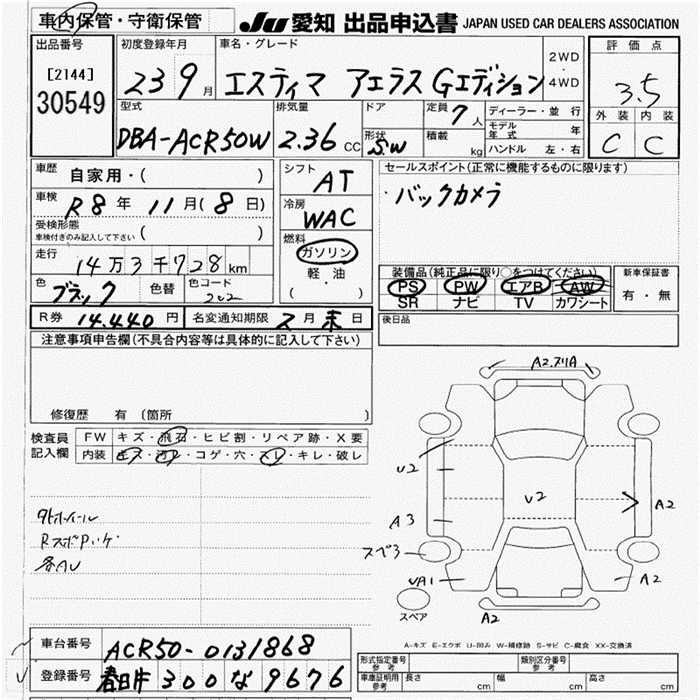 車内保管・守衛保管 JU 愛知 出品申込書 JAPAN USED CAR DEALERS ASSOCIATION
出品番号
[2144]
30549
初度登録年月
23 9月
車名・グレード
エスティマ アエラス Gエディション
2WD
・
4WD
評価点
3.5
外装 内装
C C
型式
DBA-ACR50W
排気量
2.36 CC
ドア
形状
S.W
定員 7人
積載 kg
ディーラー・並行
モデル年式 年
ハンドル 左・右
車歴 自家用・( )
車検 R8年 11月(8日)
受検形態
車検付きのみ記入して下さい ( )
走行
14万3千728km
色 ブラック 色替 色コード 202
シフト AT
冷房 WAC
燃料
ガソリン
軽・油
( ・ )
セールスポイント(正常に機能するものに限ります)
・バックカメラ
装備品(純正品に限り○をつけてください)
PS PW エアB AW
SR ナビ TV カワシート
新車保証書
有・無
R券 14.440円 名変通知期限 2月末日
後日品
注意事項申告欄(不具合内容等は具体的に記入して下さい)
修復歴 有(箇所 )
検査員記入欄
FW キズ・飛石・ヒビ割・リペア跡・X要
内装 キズ・汚レ・コゲ・穴・スレ・キレ・破レ
各AU
A2.スリA
U2
U2
A2
A3
スペ3
UA1
A2
A2
スペア
A-キズ E-エクボ U-凹み W-補修跡 S-サビ C-腐食 XX-交換済
車台番号 ACR50-0131868
登録番号 春日井 300 な 9676
形式指定番号 参考 類別区分番号 参考
車庫証明用 参考 長さ cm 幅 cm 高さ cm